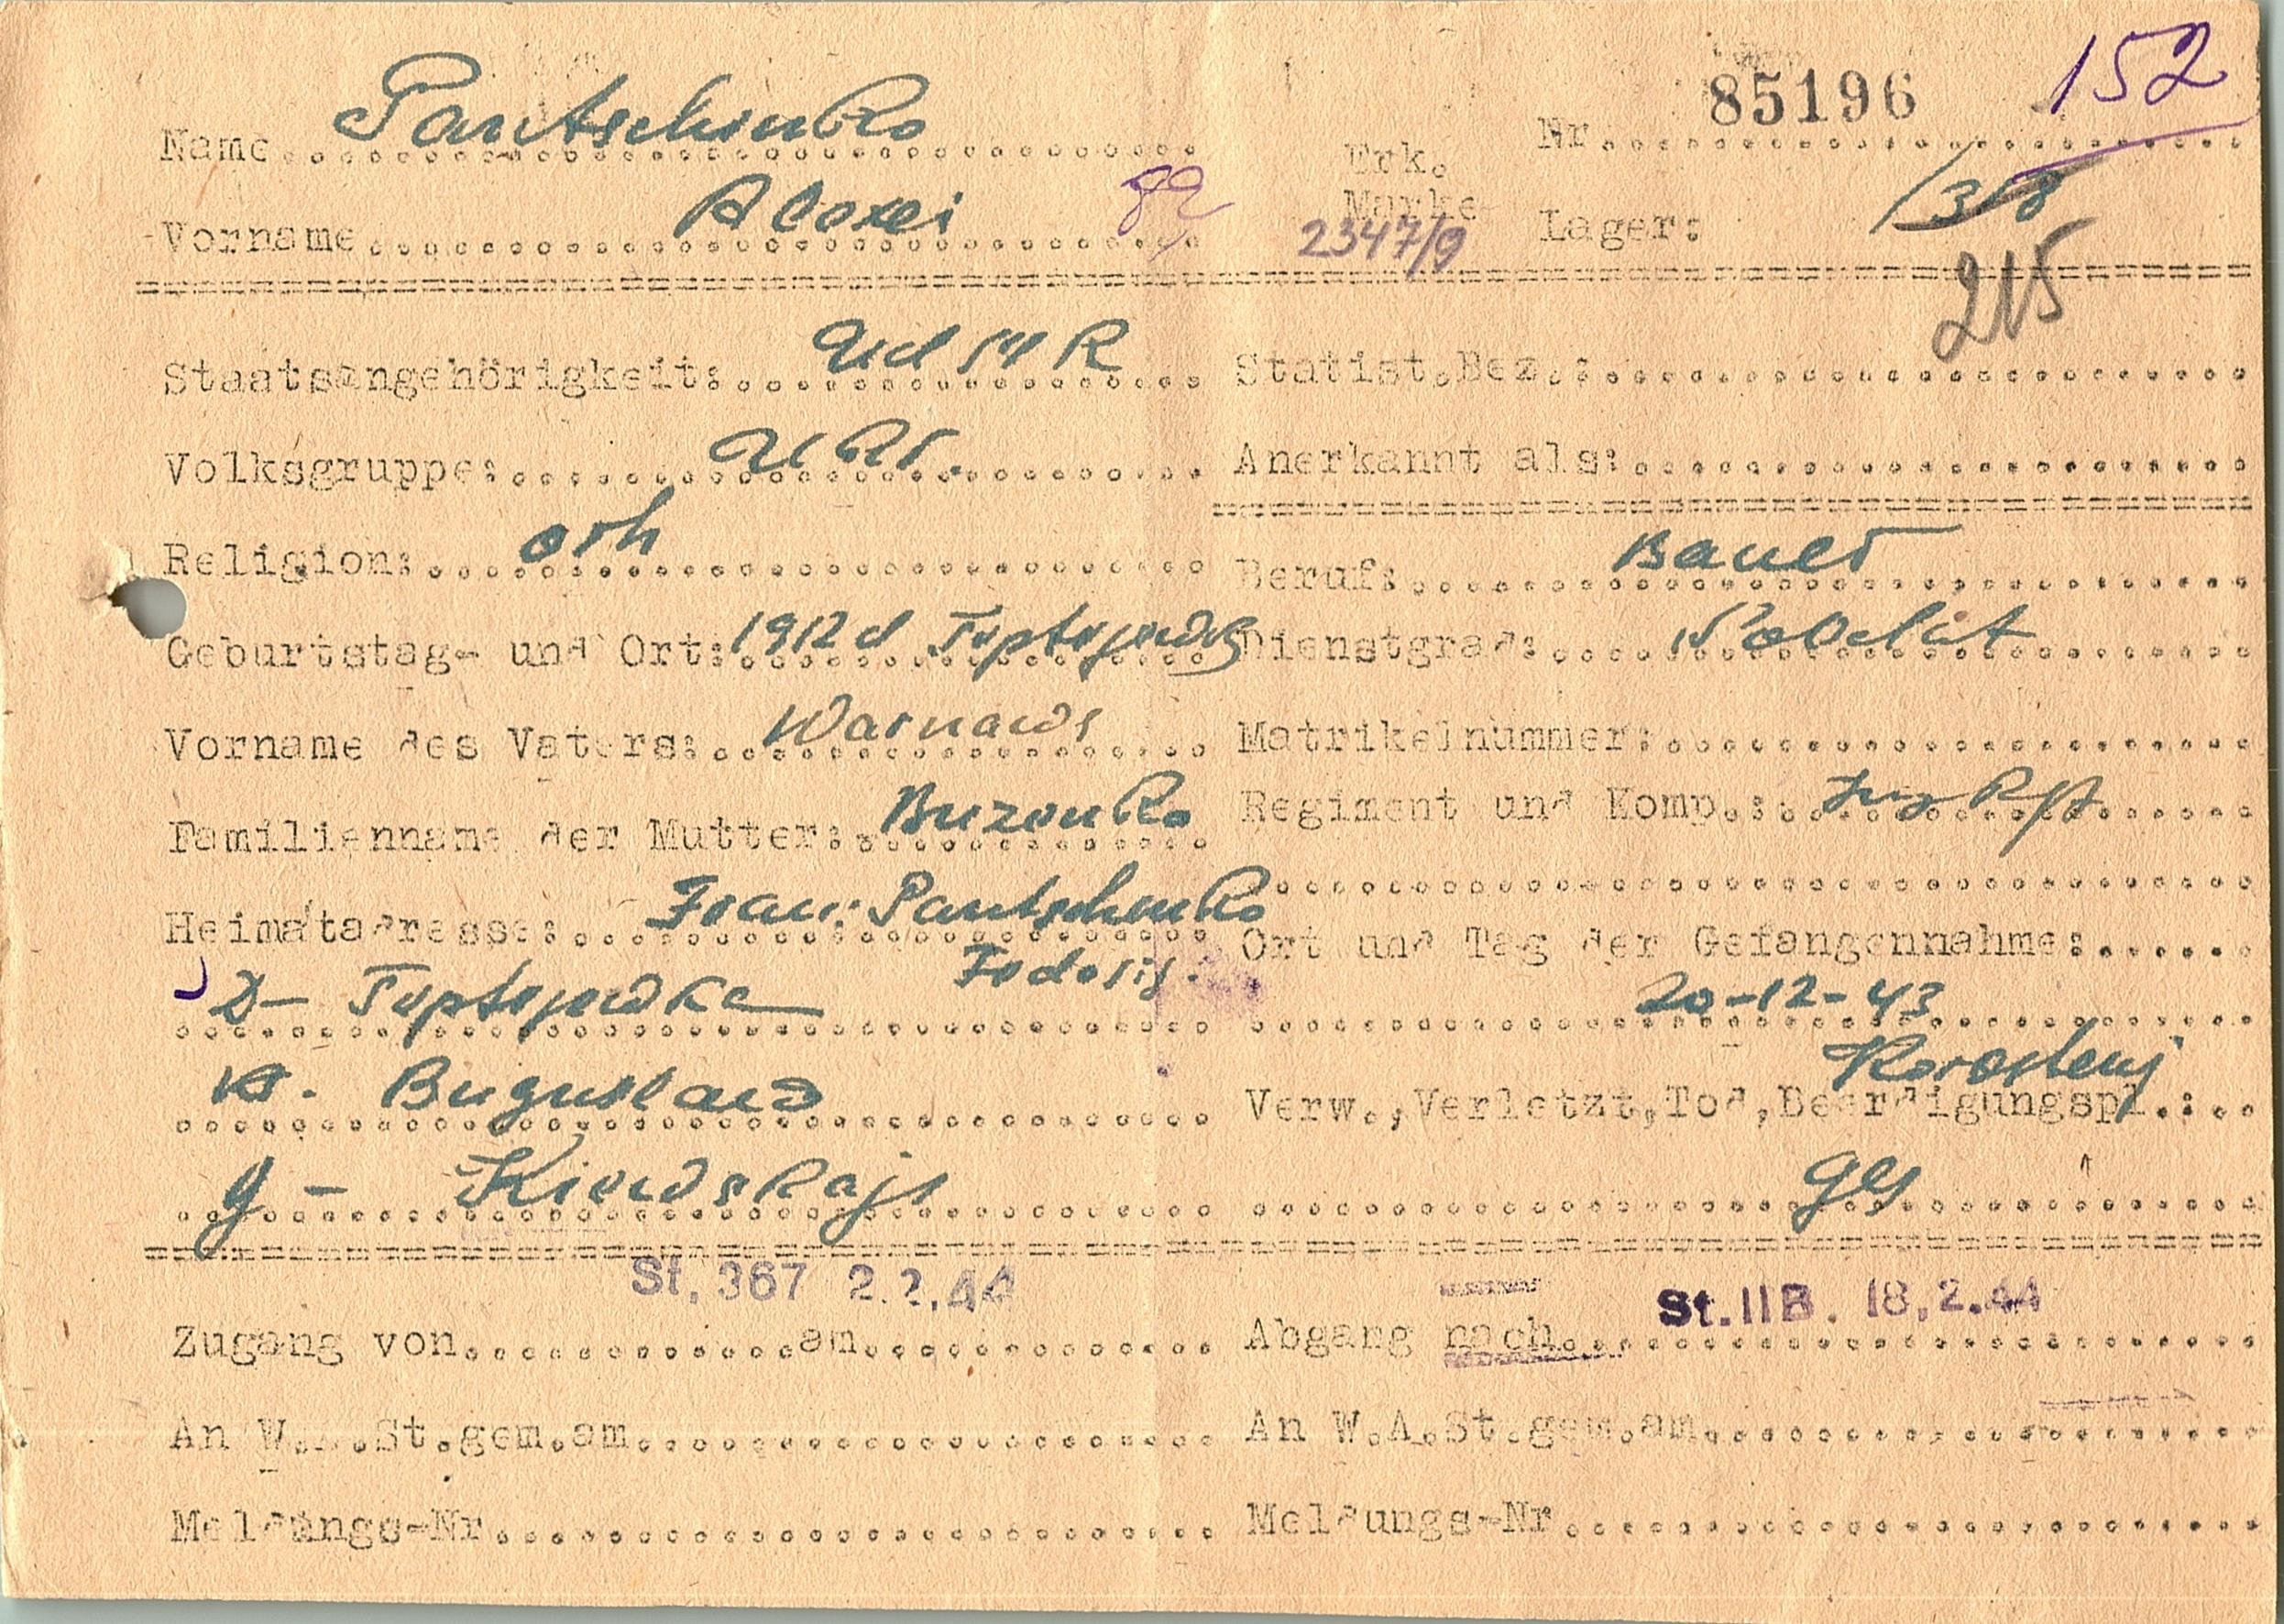 Name Pantschenko
Vorname Alexei 82
Erk. Marke 2347/9
Nr. 85196 152
Lager: 318
215
Staatsangehörigkeit: UdSSR
Volksgruppe: Ukr.
Religion: orh
Geburtstag- und Ort: 1912 d Tuptejewka
Vorname des Vaters: Warnaws
Familienname der Mutter: Buzenko
Heimatadresse: Frau: Pantschenko
Fedosij.
D- Tuptejewka
Buguslaw
g- Kiewskaja
Statist.Bez.:
Anerkannt als:
Beruf: Bauer
Dienstgrad: Soldat
Matrikelnummer:
Regiment und Komp.:
Ort und Tag der Gefangennahme:
20-12-43
Korostenj
Verw.,Verletzt,Tod,Beerdigungspl.:
St. 367 2.2.44
Zugang von am
An W.A.St.gem.am
Meldungs-Nr
St. IIB. 18.2.44
Abgang nach
An W.A.St.gem.am
Meldungs-Nr